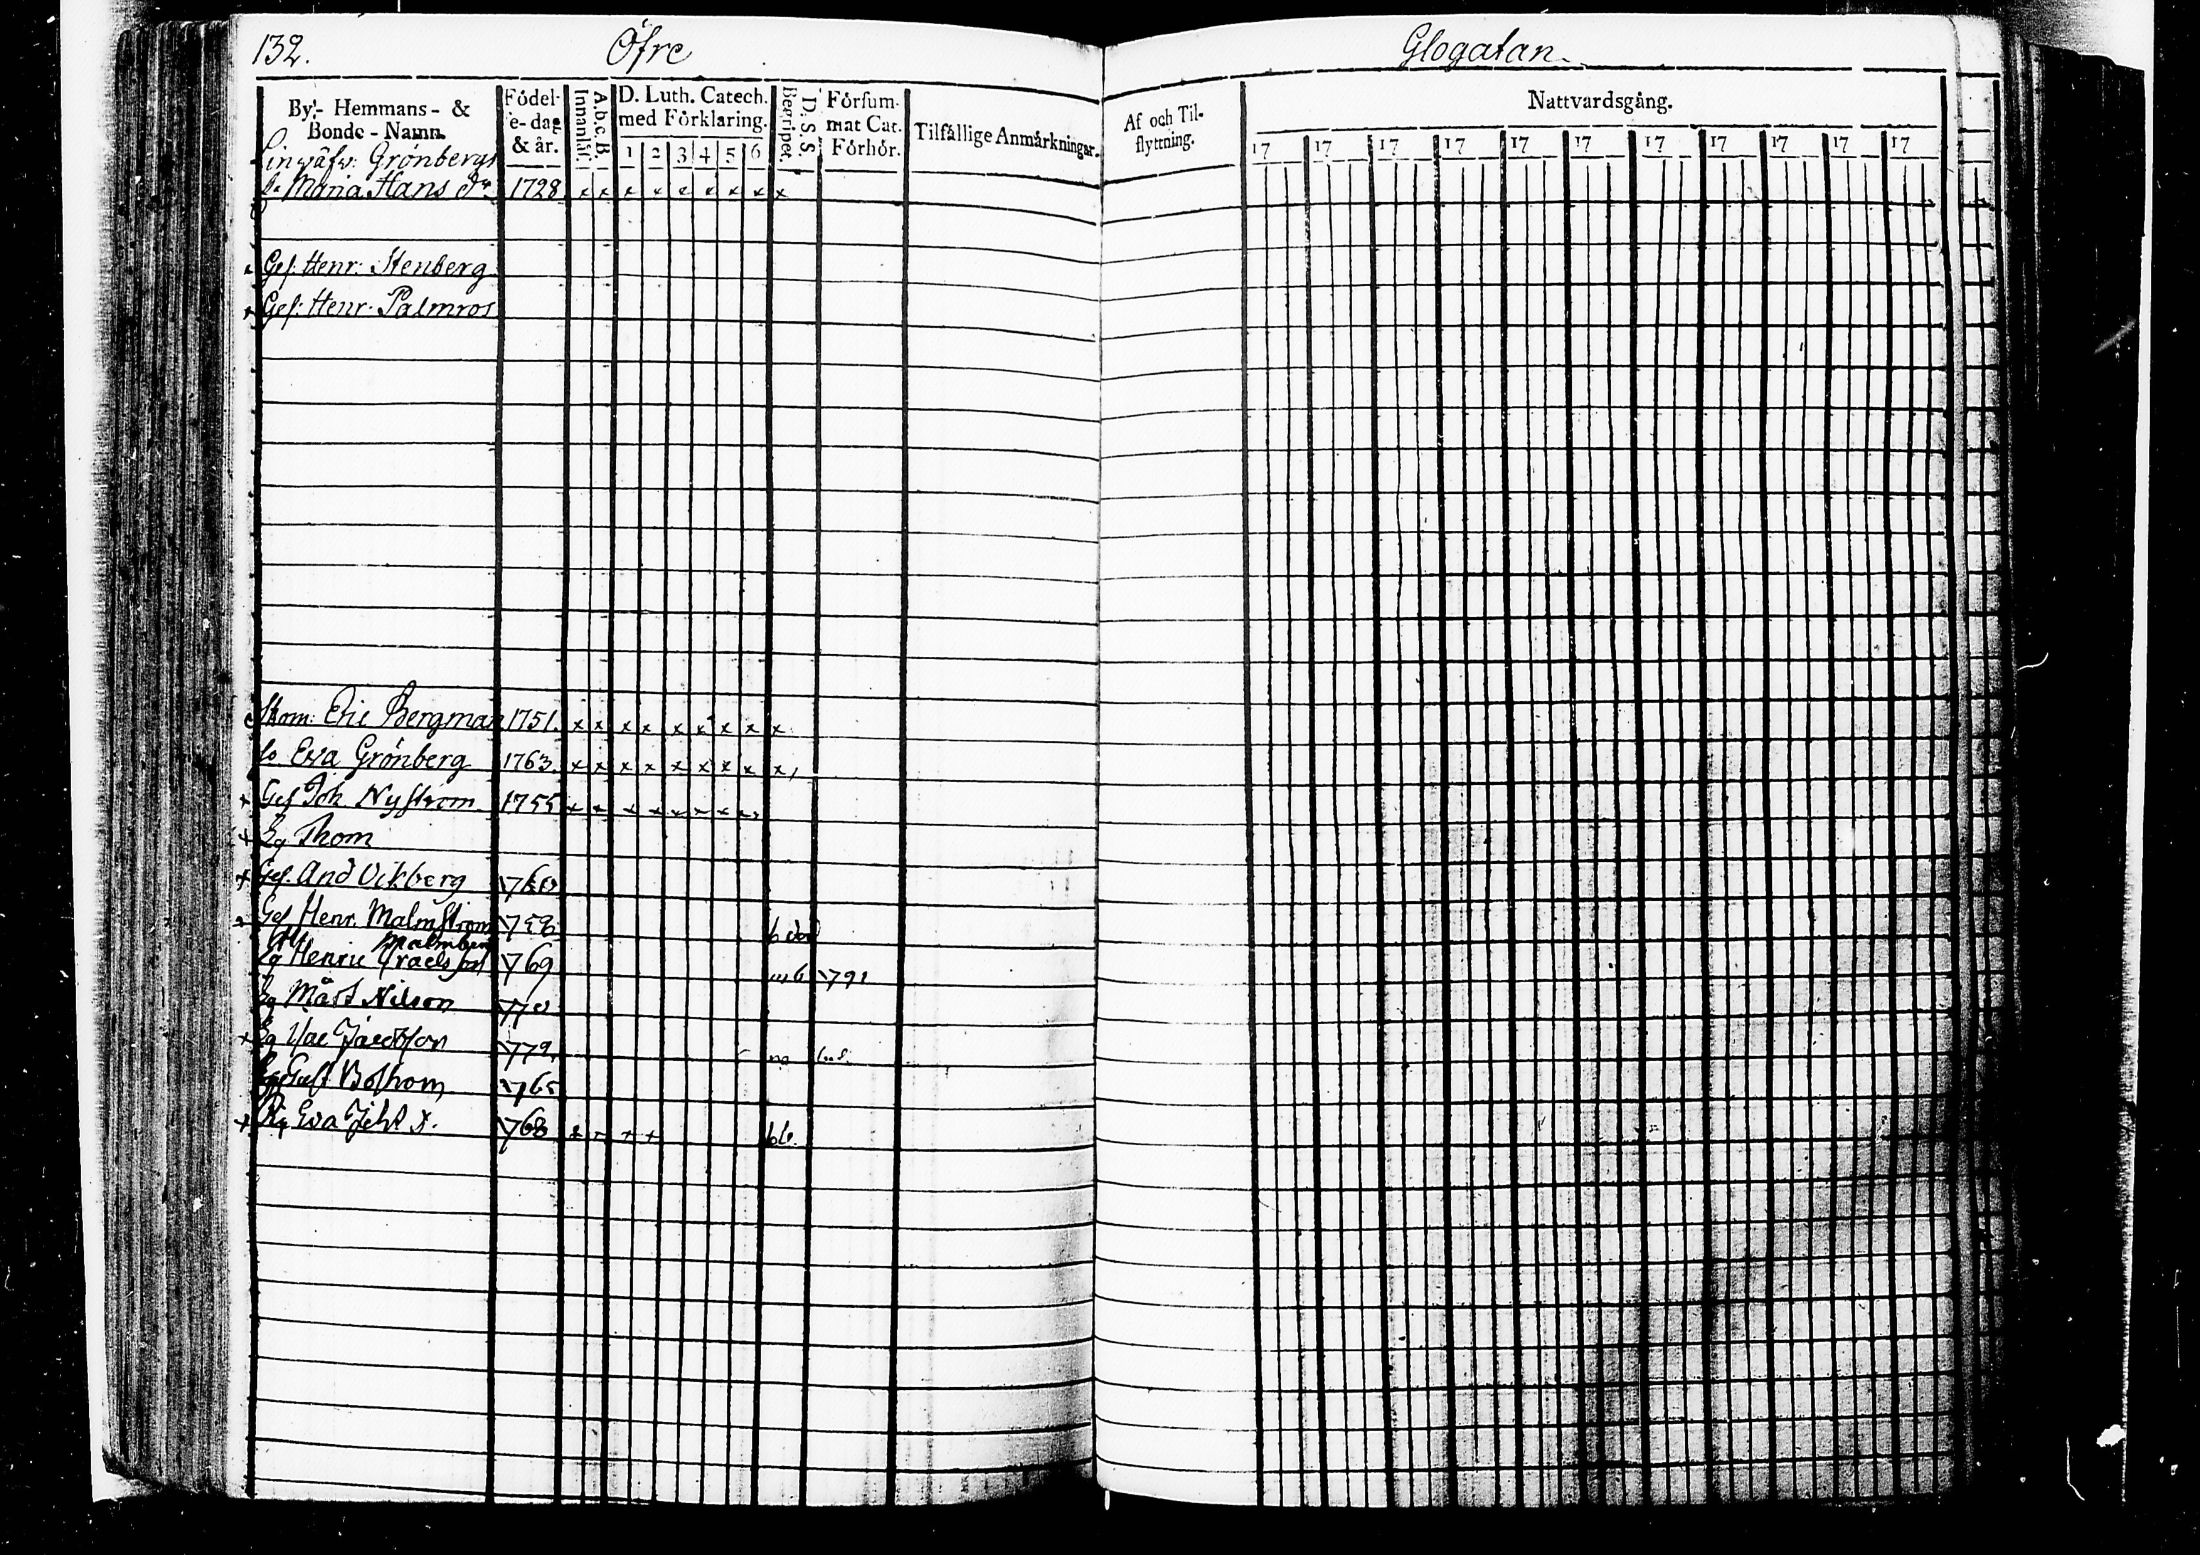 132. Öfre Glogatan
By- Hemmans- & Bonde-Namn.
Födelse-dag & år.
Innanläs.
A.b.c.B.
D. Luth. Catech. med Förklaring.
1 2 3 4 5 6
Begripet.
D. S. S.
Försummat Cat. Förhör.
Tilfällige Anmärkningar.
Af och Tilflyttning.
Nattvardsgång.
17 17 17 17 17 17 17 17 17 17 17
Linwäfv: Grönbergs
Maria Hans dr 1728 x x x x x x x x x
Ges: Henr: Stenberg
Ges: Henr: Palmros
Skom: Eric Bergman 1751. x x x x x x x x x
Eva Grönberg 1763. x x x x x x x x x
Ges Joh Nyström 1755
Lg Thom
Ges. And Vikberg 1760
Ges Henr. Malmström
Malmberg
Lg Henric 1769 1791
Lg Mårt Nilson
Lg Isac Jacobson
Gust Bothom 1765
Pig Eva 1768